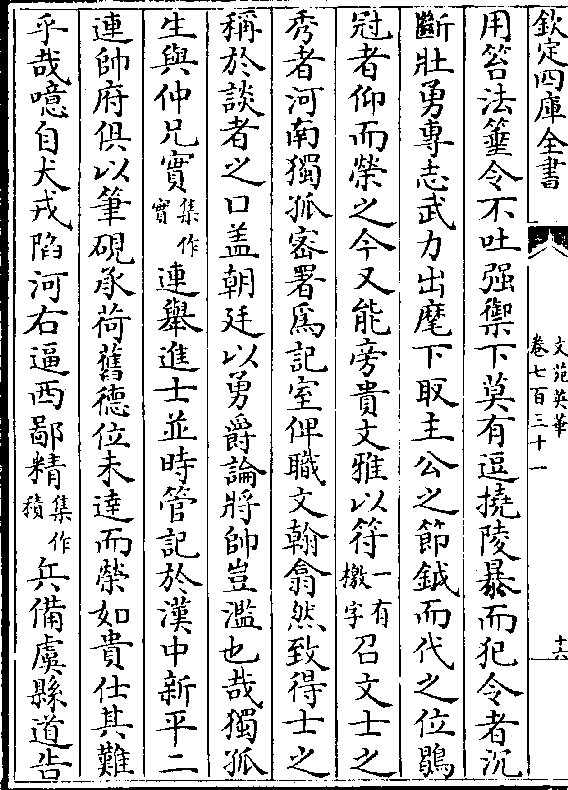 欽定四庫全書
文苑英華
卷七百三十一
十六
用笞法箠令不吐强禦下莫有逗撓陵暴而犯令者沉
斷壯勇專志武力出麾下取主公之節鉞而代之位鶡
冠者仰而榮之今又能旁貴文雅以符一有檄字召文士之
秀者河南獨孤宻署爲記室俾職文翰翕然致得士之
稱於談者之口盖朝廷以勇爵論將帥豈濫也哉獨孤
生與仲兄實集作寔連舉進士並時管記於漢中新平二
連帥府俱以筆硯承荷舊德位未達而榮如貴仕其難
乎哉噫自犬戎陷河右逼西鄙精集作積兵備虞縣道告